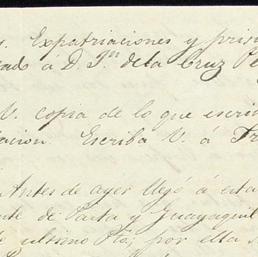 s. Expatriaciones y pris
ado á D. Jn. de la Cruz Pe
V. copia de lo que escri
acion. Escriba V. á Fr
Antes de ayer llegó á esta
te de Paita y Guayaquil
ultimo Pto; por ella s